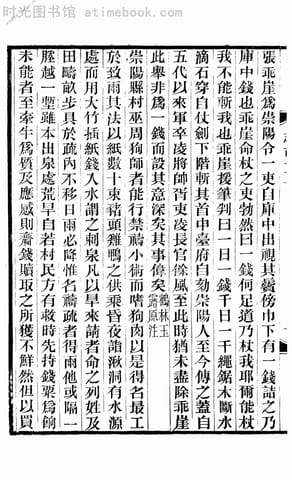 时光图书馆 atimebook.com
張乖崖爲崇陽令一吏自庫中出視其鬢傍巾下有一錢詰之乃
庫中錢也乖崖命杖之吏勃然曰一錢何足道乃杖我耶爾能杖
我不能斬我也乖崖援筆判曰一日一錢千日一千繩鋸木斷水
滴石穿自仗劍下階斬其首申臺府自劾崇陽人至今傳之蓋自
五代以來軍卒凌將帥胥吏凌長官餘風至此時猶未盡除乖崖
此舉非爲一錢而設其意深矣其事偉矣 鶴林玉露原注
崇陽縣村巫周狗師者能行禁禱小術而嗜狗肉以是得名最工
於致雨其法以紙數十束豬頭雞鴨之供乘昏夜詣湫洞有水源
處而用大竹插紙錢入水謂之刺泉凡以旱來請者命之列姓及
田疇畝步具於疏內不移日雨必降惟名禱疏者得雨他或隔一
塍越一壟雖本出泉處荒旱自若村民方有救時先持錢粟爲餉
未能者至牽牛爲質及應感則齎錢贖取之所獲不鮮然但以買